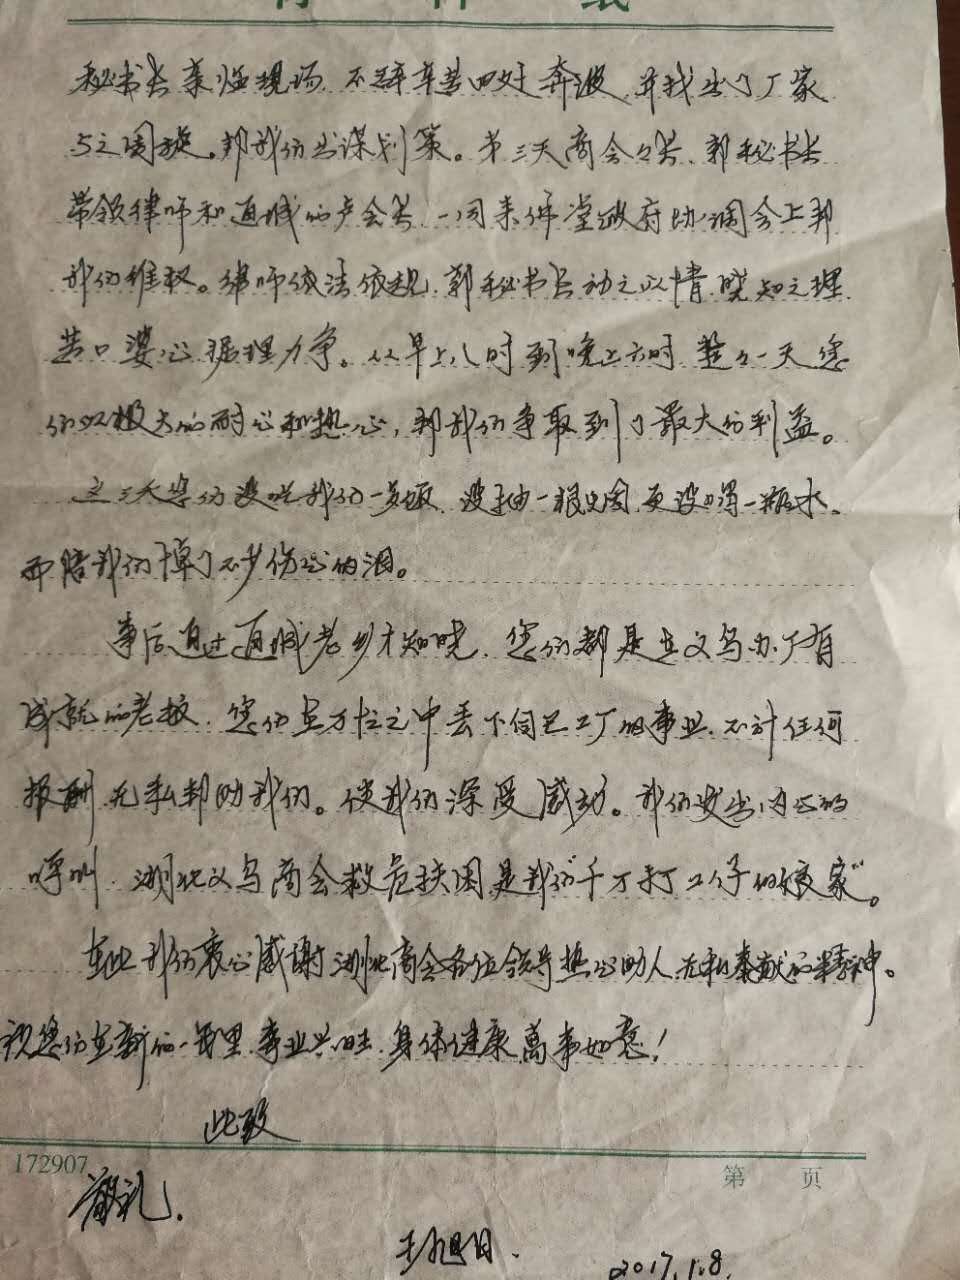 秘书长亲临现场，不辞辛苦四处奔波，并找出了厂家
与之周旋。帮我们出谋划策。第三天商会会长、郭秘书长
带领律师和通城的卢会长，一同来佛堂政府协调会上帮
我们维权。律师依法依规，郭秘书长动之以情晓知之理
苦口婆心据理力争。从早上八时到晚上六时，整整一天您
们以极大的耐心和热心，帮我们争取到了最大的利益。
这三天您们没吃我们一餐饭，没抽一根烟，更没喝一瓶水。
而陪我们掉了不少伤心的泪。
事后通过通城老乡才知晓，您们都是在义乌办厂有
成就的老板，您们在万忙之中丢下自己工厂的事业，不计任何
报酬，无私帮助我们。使我们深受感动。我们发出内心的
呼叫，湖北义乌商会救危扶困，是我们“千万打工人子的娘家”。
在此我们衷心感谢湖北商会各位领导热心助人，无私奉献的精神。
祝您们在新的一年里，事业兴旺，身体健康，萬事如意！
此致
172907
第 页
敬礼．
旭日．
2017.1.8.